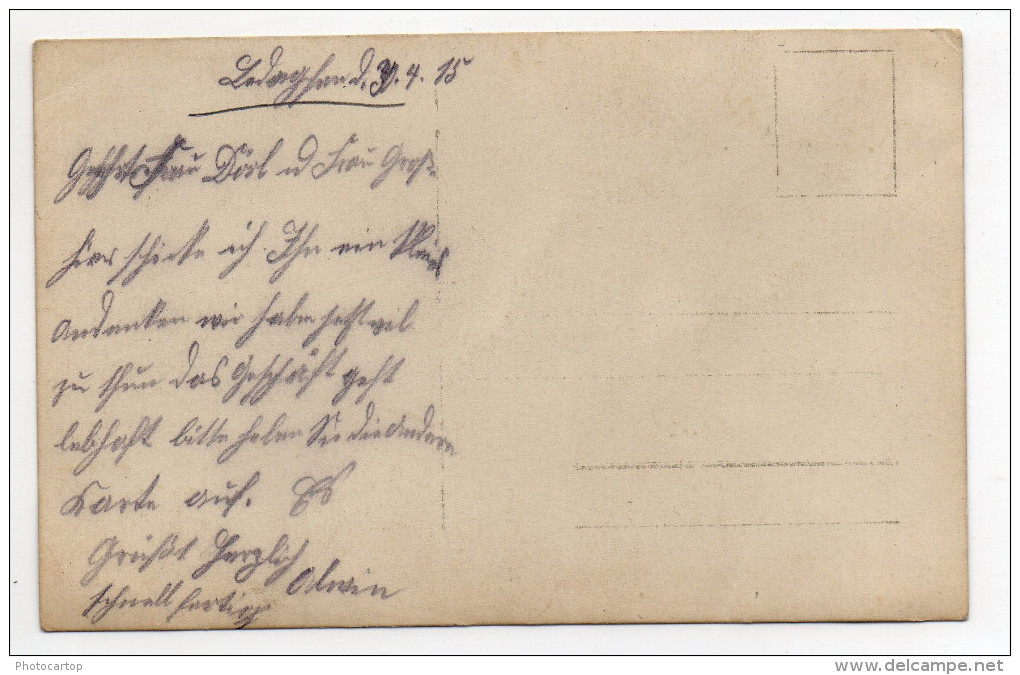 Ledeghem d. 3.4.15
Geehrte Frau Dörl u Frau Groß.
hier schicke ich Ihn ein kleines
Andenken wir haben sehr vil
zu thun das Geschäft geht
lebhaft bitte heben Sie die Andere
Karte auf. Es
Grüßt Herzlich
schnell fertig Alwin
Photocartop
www.delcampe.net